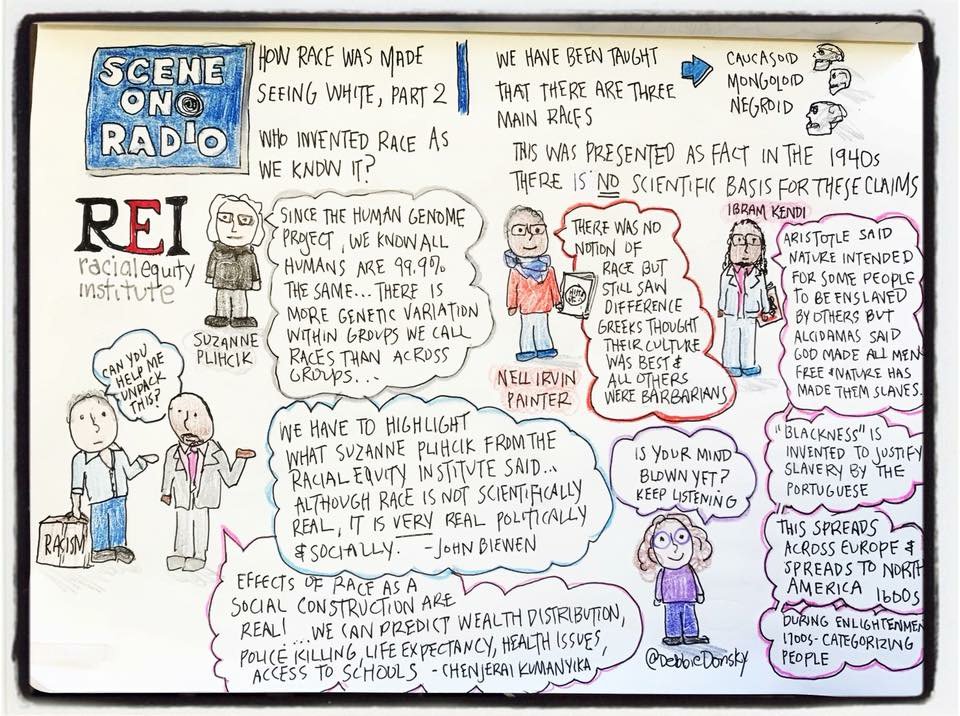 SCENE
ON
RADIO
HOW RACE WAS MADE
SEEING WHITE, PART 2
WHO INVENTED RACE AS
WE KNOW IT?
WE HAVE BEEN TAUGHT
THAT THERE ARE THREE
MAIN RACES
CAUCASOID
MONGOLOID
NEGROID
THIS WAS PRESENTED AS FACT IN THE 1940s
THERE IS NO SCIENTIFIC BASIS FOR THESE CLAIMS
REI
racial equity
institute
SUZANNE
PLIHCIK
SINCE THE HUMAN GENOME
PROJECT, WE KNOW ALL
HUMANS ARE 99.9%
THE SAME... THERE IS
MORE GENETIC VARIATION
WITHIN GROUPS WE CALL
RACES THAN ACROSS
GROUPS...
NELL IRVIN
PAINTER
THERE WAS NO
NOTION OF
RACE BUT
STILL SAW
DIFFERENCE
GREEKS THOUGHT
THEIR CULTURE
WAS BEST &
ALL OTHERS
WERE BARBARIANS
IBRAM KENDI
ARISTOTLE SAID
NATURE INTENDED
FOR SOME PEOPLE
TO BE ENSLAVED
BY OTHERS BUT
ALCIDAMAS SAID
GOD MADE ALL MEN
FREE & NATURE HAS
MADE THEM SLAVES.
"BLACKNESS" IS
INVENTED TO JUSTIFY
SLAVERY BY THE
PORTUGUESE
THIS SPREADS
ACROSS EUROPE &
SPREADS TO NORTH
AMERICA 1600s
DURING ENLIGHTENMEN
1700s - CATEGORIZING
PEOPLE
CAN YOU
HELP ME
UNPACK
THIS?
RACISM
WE HAVE TO HIGHLIGHT
WHAT SUZANNE PLIHCIK FROM THE
RACIAL EQUITY INSTITUTE SAID...
ALTHOUGH RACE IS NOT SCIENTIFICALLY
REAL, IT IS VERY REAL POLITICALLY
& SOCIALLY. - JOHN BIEWEN
EFFECTS OF RACE AS A
SOCIAL CONSTRUCTION ARE
REAL! ...WE CAN PREDICT WEALTH DISTRIBUTION,
POLICE KILLING, LIFE EXPECTANCY, HEALTH ISSUES,
ACCESS TO SCHOOLS - CHENJERAI KUMANYIKA
IS YOUR MIND
BLOWN YET?
KEEP LISTENING
@DebbieDonsky